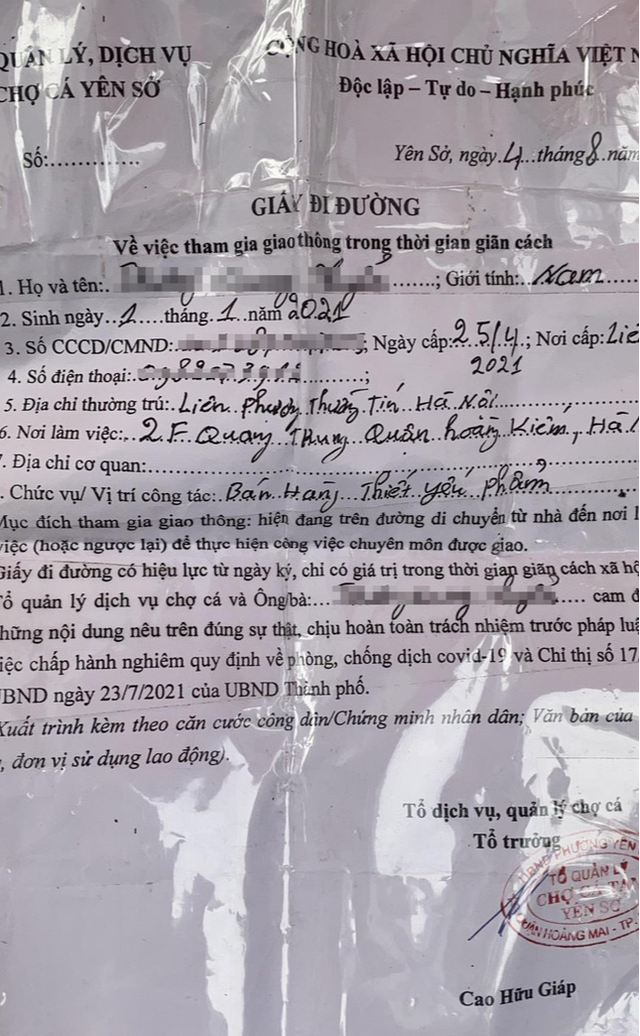 QUẢN LÝ, DỊCH VỤ
CHỢ CÁ YÊN SỞ
CỘNG HOÀ XÃ HỘI CHỦ NGHĨA VIỆT N
Độc lập – Tự do – Hạnh phúc
Số:.............
Yên Sở, ngày 4 tháng 8 năm
GIẤY ĐI ĐƯỜNG
Về việc tham gia giao thông trong thời gian giãn cách
1. Họ và tên: ......; Giới tính: Nam
2. Sinh ngày 1 tháng 1 năm 2021
3. Số CCCD/CMND: ; Ngày cấp: 25/4 ; Nơi cấp:
2021
4. Số điện thoại: ;
5. Địa chỉ thường trú: Liên Phương Thường Tín Hà Nội
6. Nơi làm việc: 2F Quang Trung Quận hoàn Kiếm, Hà
7. Địa chỉ cơ quan:
. Chức vụ/ Vị trí công tác: Bán Hàng Thiết yếu phẩm
Mục đích tham gia giao thông: hiện đang trên đường di chuyển từ nhà đến nơi l
việc (hoặc ngược lại) để thực hiện công việc chuyên môn được giao.
Giấy đi đường có hiệu lực từ ngày ký, chỉ có giá trị trong thời gian giãn cách xã hộ
Tổ quản lý dịch vụ chợ cá và Ông/bà: ..... cam đ
những nội dung nêu trên đúng sự thật, chịu hoàn toàn trách nhiệm trước pháp luậ
việc chấp hành nghiêm quy định về phòng, chống dịch covid-19 và Chỉ thị số 17
UBND ngày 23/7/2021 của UBND Thành phố.
Xuất trình kèm theo căn cước công dân/Chứng minh nhân dân; Văn bản của
, đơn vị sử dụng lao động).
Tổ dịch vụ, quản lý chợ cá
Tổ trưởng
UBND PHƯỜNG YÊN
TỔ QUẢN LÝ
CHỢ CÁ TẠI
YÊN SỞ
QUẬN HOÀNG MAI - TP.
Cao Hữu Giáp